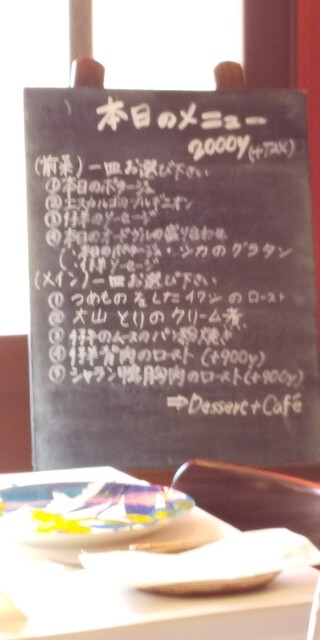 本日のメニュー
2000y (+TAX)
(前菜) 一皿お選び下さい
① 本日のポタージュ
② エスカルゴのブルギニオン
③ 仔羊のソーセージ
④ 本日のオードブルの盛り合わせ
(本日のポタージュ・シカのグラタン
仔羊ソーセージ
(メイン) 一皿お選び下さい
① つめものをしたイワシのロースト
② 大山とりのクリーム煮
③ 仔羊のムースのパン粉焼き
④ 仔羊背肉のロースト (+900y)
⑤ シャラン鴨胸肉のロースト (+900y)
⇒Dessert+Café